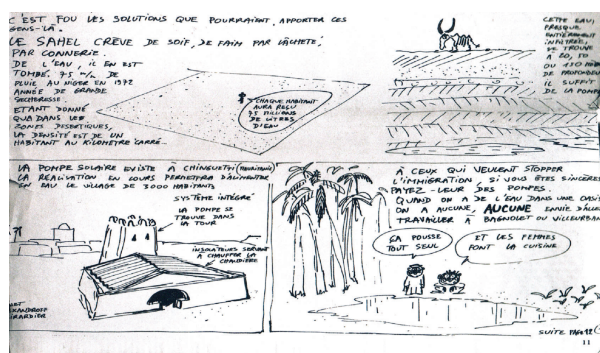 C'EST FOU LES SOLUTIONS QUE POURRAIENT, APPORTER CES
GENS-LÀ.
LE SAHEL CRÈVE DE SOIF, DE FAIM PAR LÂCHETÉ,
PAR CONNERIE.
DE L'EAU, IL EN EST
TOMBÉ. 75 m/m DE
PLUIE AU NIGER EN 1972
ANNÉE DE GRANDE
SECHERESSE.
ETANT DONNÉ
QUE DANS LES
ZONES DESERTIQUES,
LA DENSITÉ EST DE UN
HABITANT AU KILOMÈTRE CARRÉ...
CHAQUE HABITANT
AURA REÇU
75 MILLIONS
DE LITRES
D'EAU
CETTE EAU,
PRESQUE
ENTIÈREMENT
INFILTRÉE,
SE TROUVE
A 20, 50
OU 150 MÈ
DE PROFONDEU
IL SUFFIT
DE LA POMPE
LA POMPE SOLAIRE EXISTE À CHINGUETTI (MAURITANIE)
LA RÉALISATION EN COURS PERMETTRA D'ALIMENTER
EN EAU LE VILLAGE DE 3000 HABITANTS
SYSTÈME INTÉGRÉ
LA POMPE SE
TROUVE DANS
LA TOUR
INSOLATEURS SERVANT
A CHAUFFER LA
CHAUDIÈRE
XANDROFF
IRARDIER
À CEUX QUI VEULENT STOPPER
L'IMMIGRATION SI VOUS ÊTES SINCÈRES
PAYEZ-LEUR DES POMPES.
QUAND ON A DE L'EAU DANS UNE OASIS
ON A AUCUNE, AUCUNE ENVIE D'ALLE
TRAVAILLER À BAGNOLET OU VILLEURBAN
ÇA POUSSE
TOUT SEUL
ET LES FEMMES
FONT LA CUISINE
SUITE PAGE 12
11